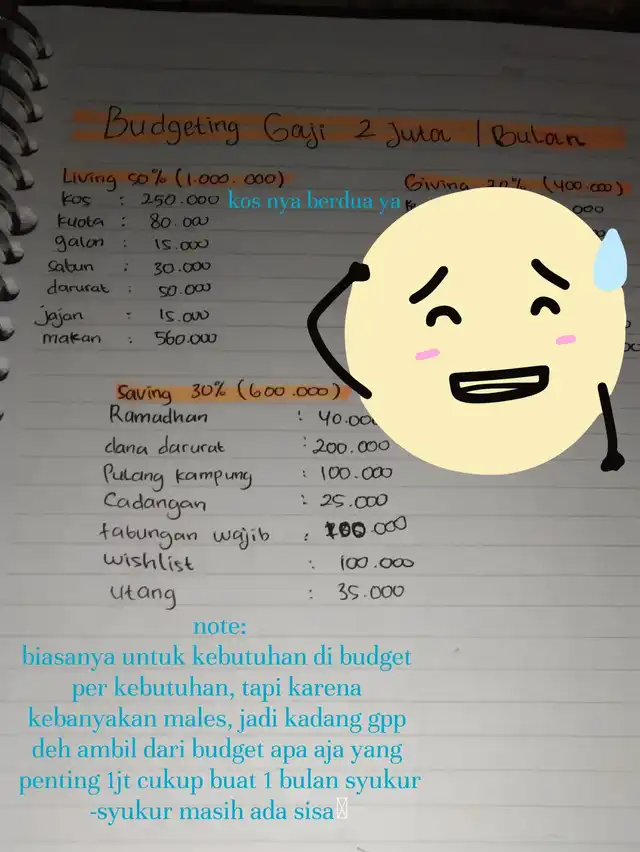 Budgeting Gaji 2 Juta / Bulan
Living 50% (1.000.000)
kos : 250.000 kos nya berdua ya
kuota : 80.000
galon : 15.000
sabun : 30.000
darurat : 50.000
jajan : 15.000
makan : 560.000
Giving 20% (400.000)
Saving 30% (600.000)
Ramadhan : 40.000
dana darurat : 200.000
Pulang kampung : 100.000
Cadangan : 25.000
tabungan wajib : 100.000
wishlist : 100.000
utang : 35.000
note:
biasanya untuk kebutuhan di budget
per kebutuhan, tapi karena
kebanyakan males, jadi kadang gpp
deh ambil dari budget apa aja yang
penting 1jt cukup buat 1 bulan syukur
-syukur masih ada sisa